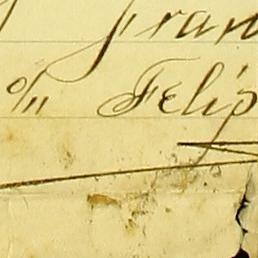 Fran
o/u Felip